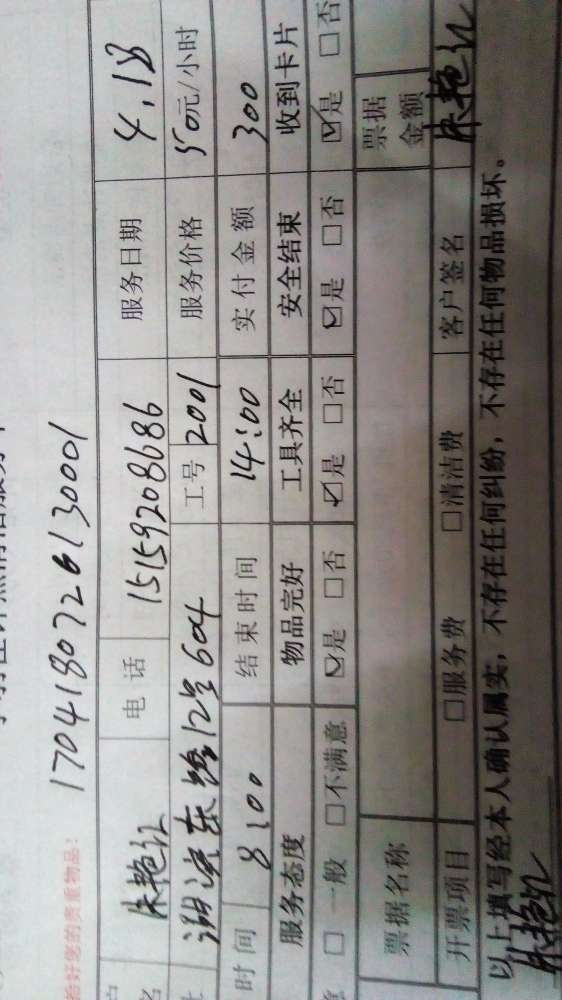 17041807226130001
拾好您的贵重物品!
名 朱艳红 电话 15159208686 服务日期 4.18
东 12号604 工号 2001 服务价格 50元/小时
时间 8:00 结束时间 14:00 实付金额 300
服务态度 物品完好 工具齐全 安全结束 收到卡片
意 □一般 □不满意 ☑是 □否 ☑是 □否 ☑是 □否 ☑是 □否
票据名称 票据金额
开票项目 □服务费 □清洁费 客户签名 朱艳红
以上填写经本人确认属实,不存在任何纠纷,不存在任何物品损坏。
朱艳红